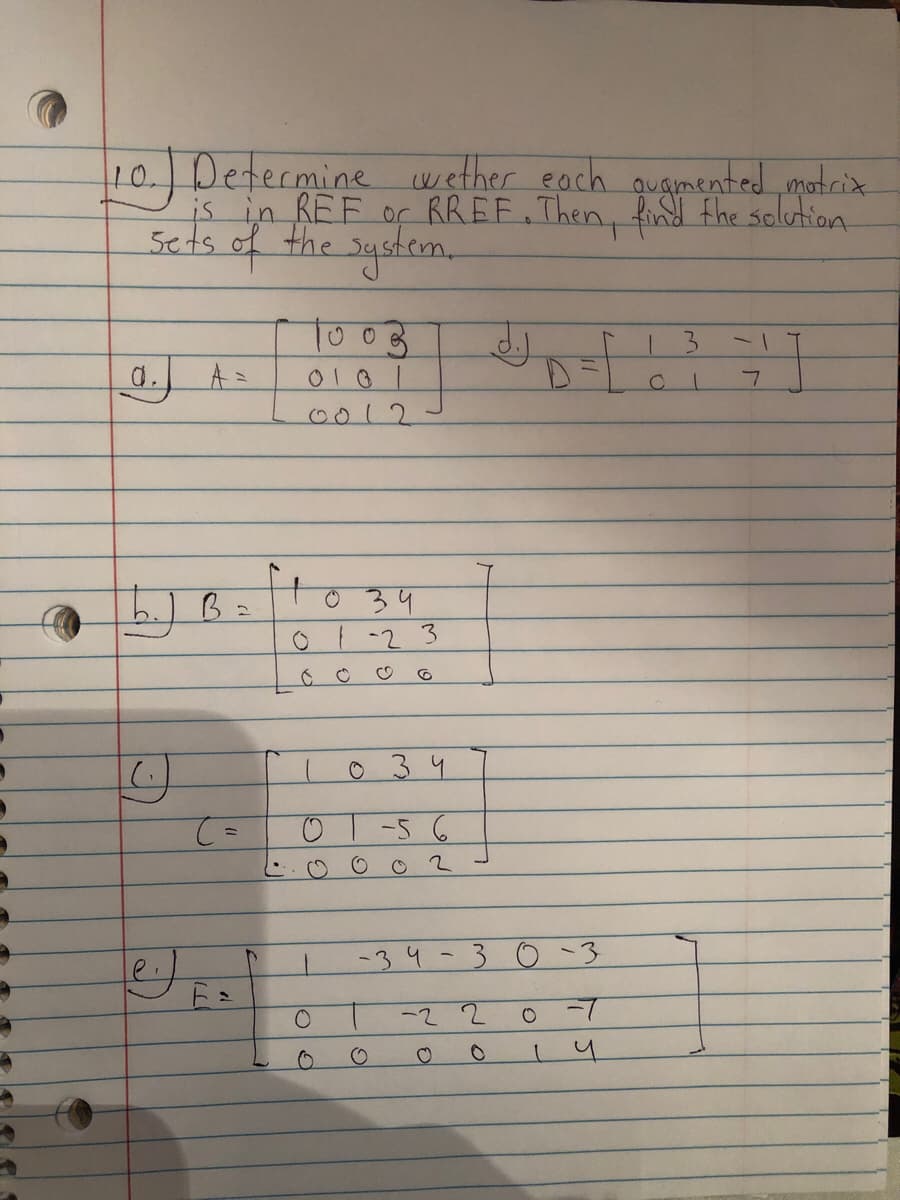 10.) Determine wether each augmented matrix
is in REF or RREF. Then, find the solution
sets of the system.
a.) A = [ 1 0 0 3
0 1 0 1
0 0 1 2 ]
d.) D = [ 1 3 -1
0 1 7 ]
b.) B = [ 1 0 3 4
0 1 -2 3
0 0 0 0 ]
c.) C = [ 1 0 3 4
0 1 -5 6
0 0 0 2 ]
e.) E = [ 1 -3 4 -3 0 -3
0 1 -2 2 0 -7
0 0 0 0 1 4 ]